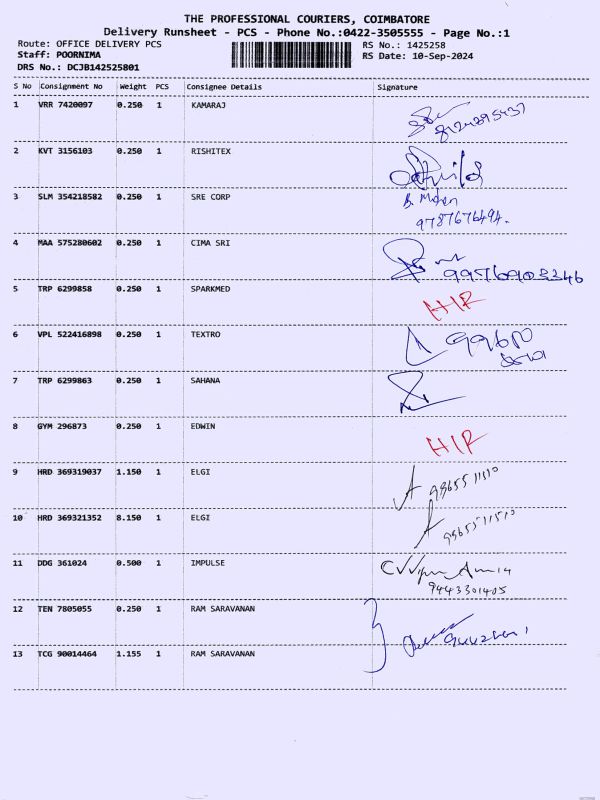 THE PROFESSIONAL COURIERS, COIMBATORE
Delivery Runsheet - PCS - Phone No.:0422-3505555 - Page No.:1
Route: OFFICE DELIVERY PCS RS No.: 1425258
Staff: POORNIMA RS Date: 10-Sep-2024
DRS No.: DCJB142525801
S No Consignment No Weight PCS Consignee Details Signature
1 VRR 7420097 0.250 1 KAMARAJ
2 KVT 3156103 0.250 1 RISHITEX
3 SLM 354218582 0.250 1 SRE CORP B. Mohan
9787676494.
4 MAA 575280602 0.250 1 CIMA SRI
5 TRP 6299858 0.250 1 SPARKMED HIR
6 VPL 522416898 0.250 1 TEXTRO
7 TRP 6299863 0.250 1 SAHANA
8 GYM 296873 0.250 1 EDWIN HIR
9 HRD 369319037 1.150 1 ELGI
10 HRD 369321352 8.150 1 ELGI
11 DDG 361024 0.500 1 IMPULSE
9443301405
12 TEN 7805055 0.250 1 RAM SARAVANAN
13 TCG 90014464 1.155 1 RAM SARAVANAN